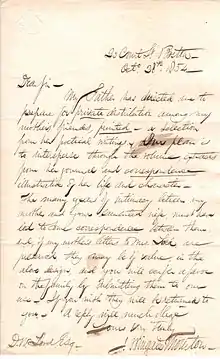 20 Court St. Boston
Oct. 28th. 1854
Dear Sir —
My Father has directed me to
prepare for private distribution among my
mother's friends, printed — a selection
from her poetical writings, & his plan is
to intersperse through the whole extracts
from her journal and correspondence
illustrative of her life and character.
The many years of intimacy between my
mother and your lamented wife must have
led to some correspondence between them
and if my mother's letters to Mrs.
preserved they may be of value in the
above design, and you will confer a favor
on the family by submitting them to our
use. If you wish they will be returned to
you. A reply will much oblige
Yours very truly
J. Wingate Thornton
Esq.